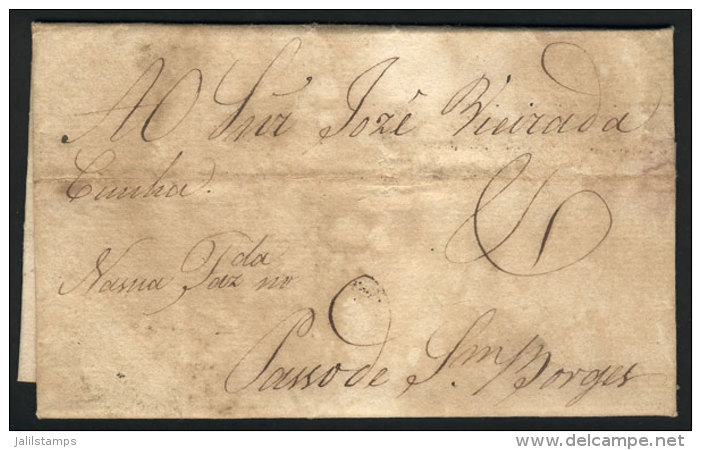 Ao Snr José Vieira da
Cunha.
Na sua Fazda no
Passo de Sm Borges
jalilstamps
delcampe.net